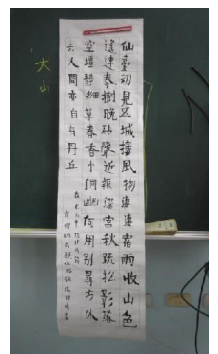 仙臺初見五城樓風物凄凄宿雨收山色
遙連秦樹晚砧聲近報漢宮秋疏松影落
空壇靜細草春香小洞幽何用別尋方外
去人間亦自有丹丘
大山